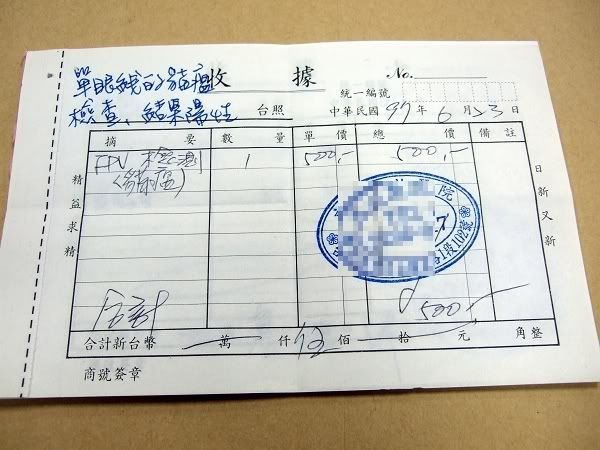 單眼線的貓瘟
檢查、結果陽性
收 據
No.
統一編號
台照
中華民國 97 年 6 月 23 日
摘 要 數 量 單 價 總 價 備 註
FPV 檢測 1 500,- 500,-
(貓瘟)
精益求精
日新又新
院
段1102號
合計 500,-
合計新台幣 萬 仟 伍 佰 拾 元 角整
商號簽章